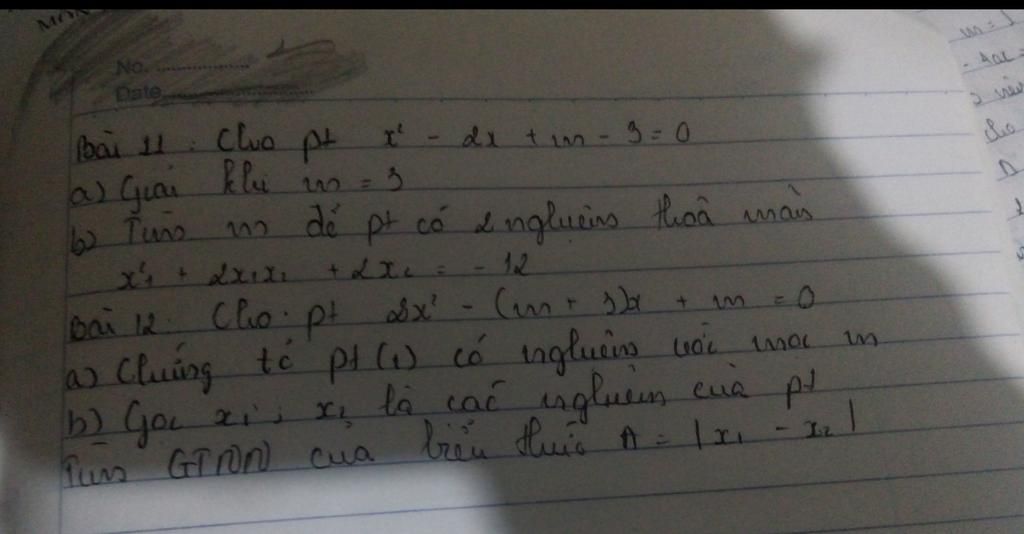 No.
Date
Bài 11 : Cho pt x² - 2x + m - 3 = 0
a) Giải khi m = 3
b) Tìm m để pt có 2 nghiệm thoả mãn
x²₁ + 2x₁x₂ + 2x₂ = -12
Bài 12 : Cho pt 2x² - (m + 3)x + m = 0
a) Chứng tỏ pt (1) có nghiệm với mọi m
b) Gọi x₁, x₂ là các nghiệm của pt
Tìm GTNN của biểu thức A = |x₁ - x₂|